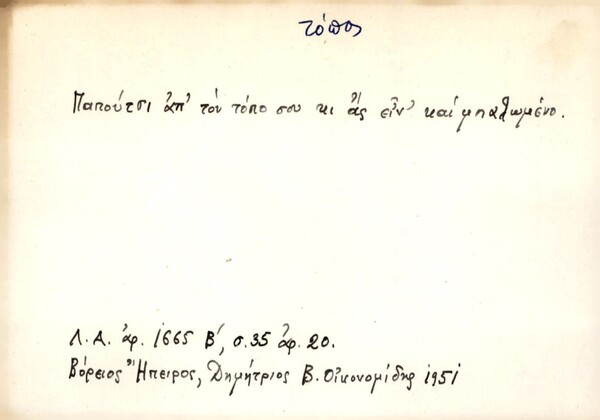 τόπος
Παπούτσι ἀπ' τὸν τόπο σου κι ἂς εἶν' καὶ μπαλωμένο.
Λ. Α. ἀρ. 1665 Β', σ. 35 ἀρ. 20.
Βόρειος Ἤπειρος, Δημήτριος Β. Οἰκονομίδης 1951